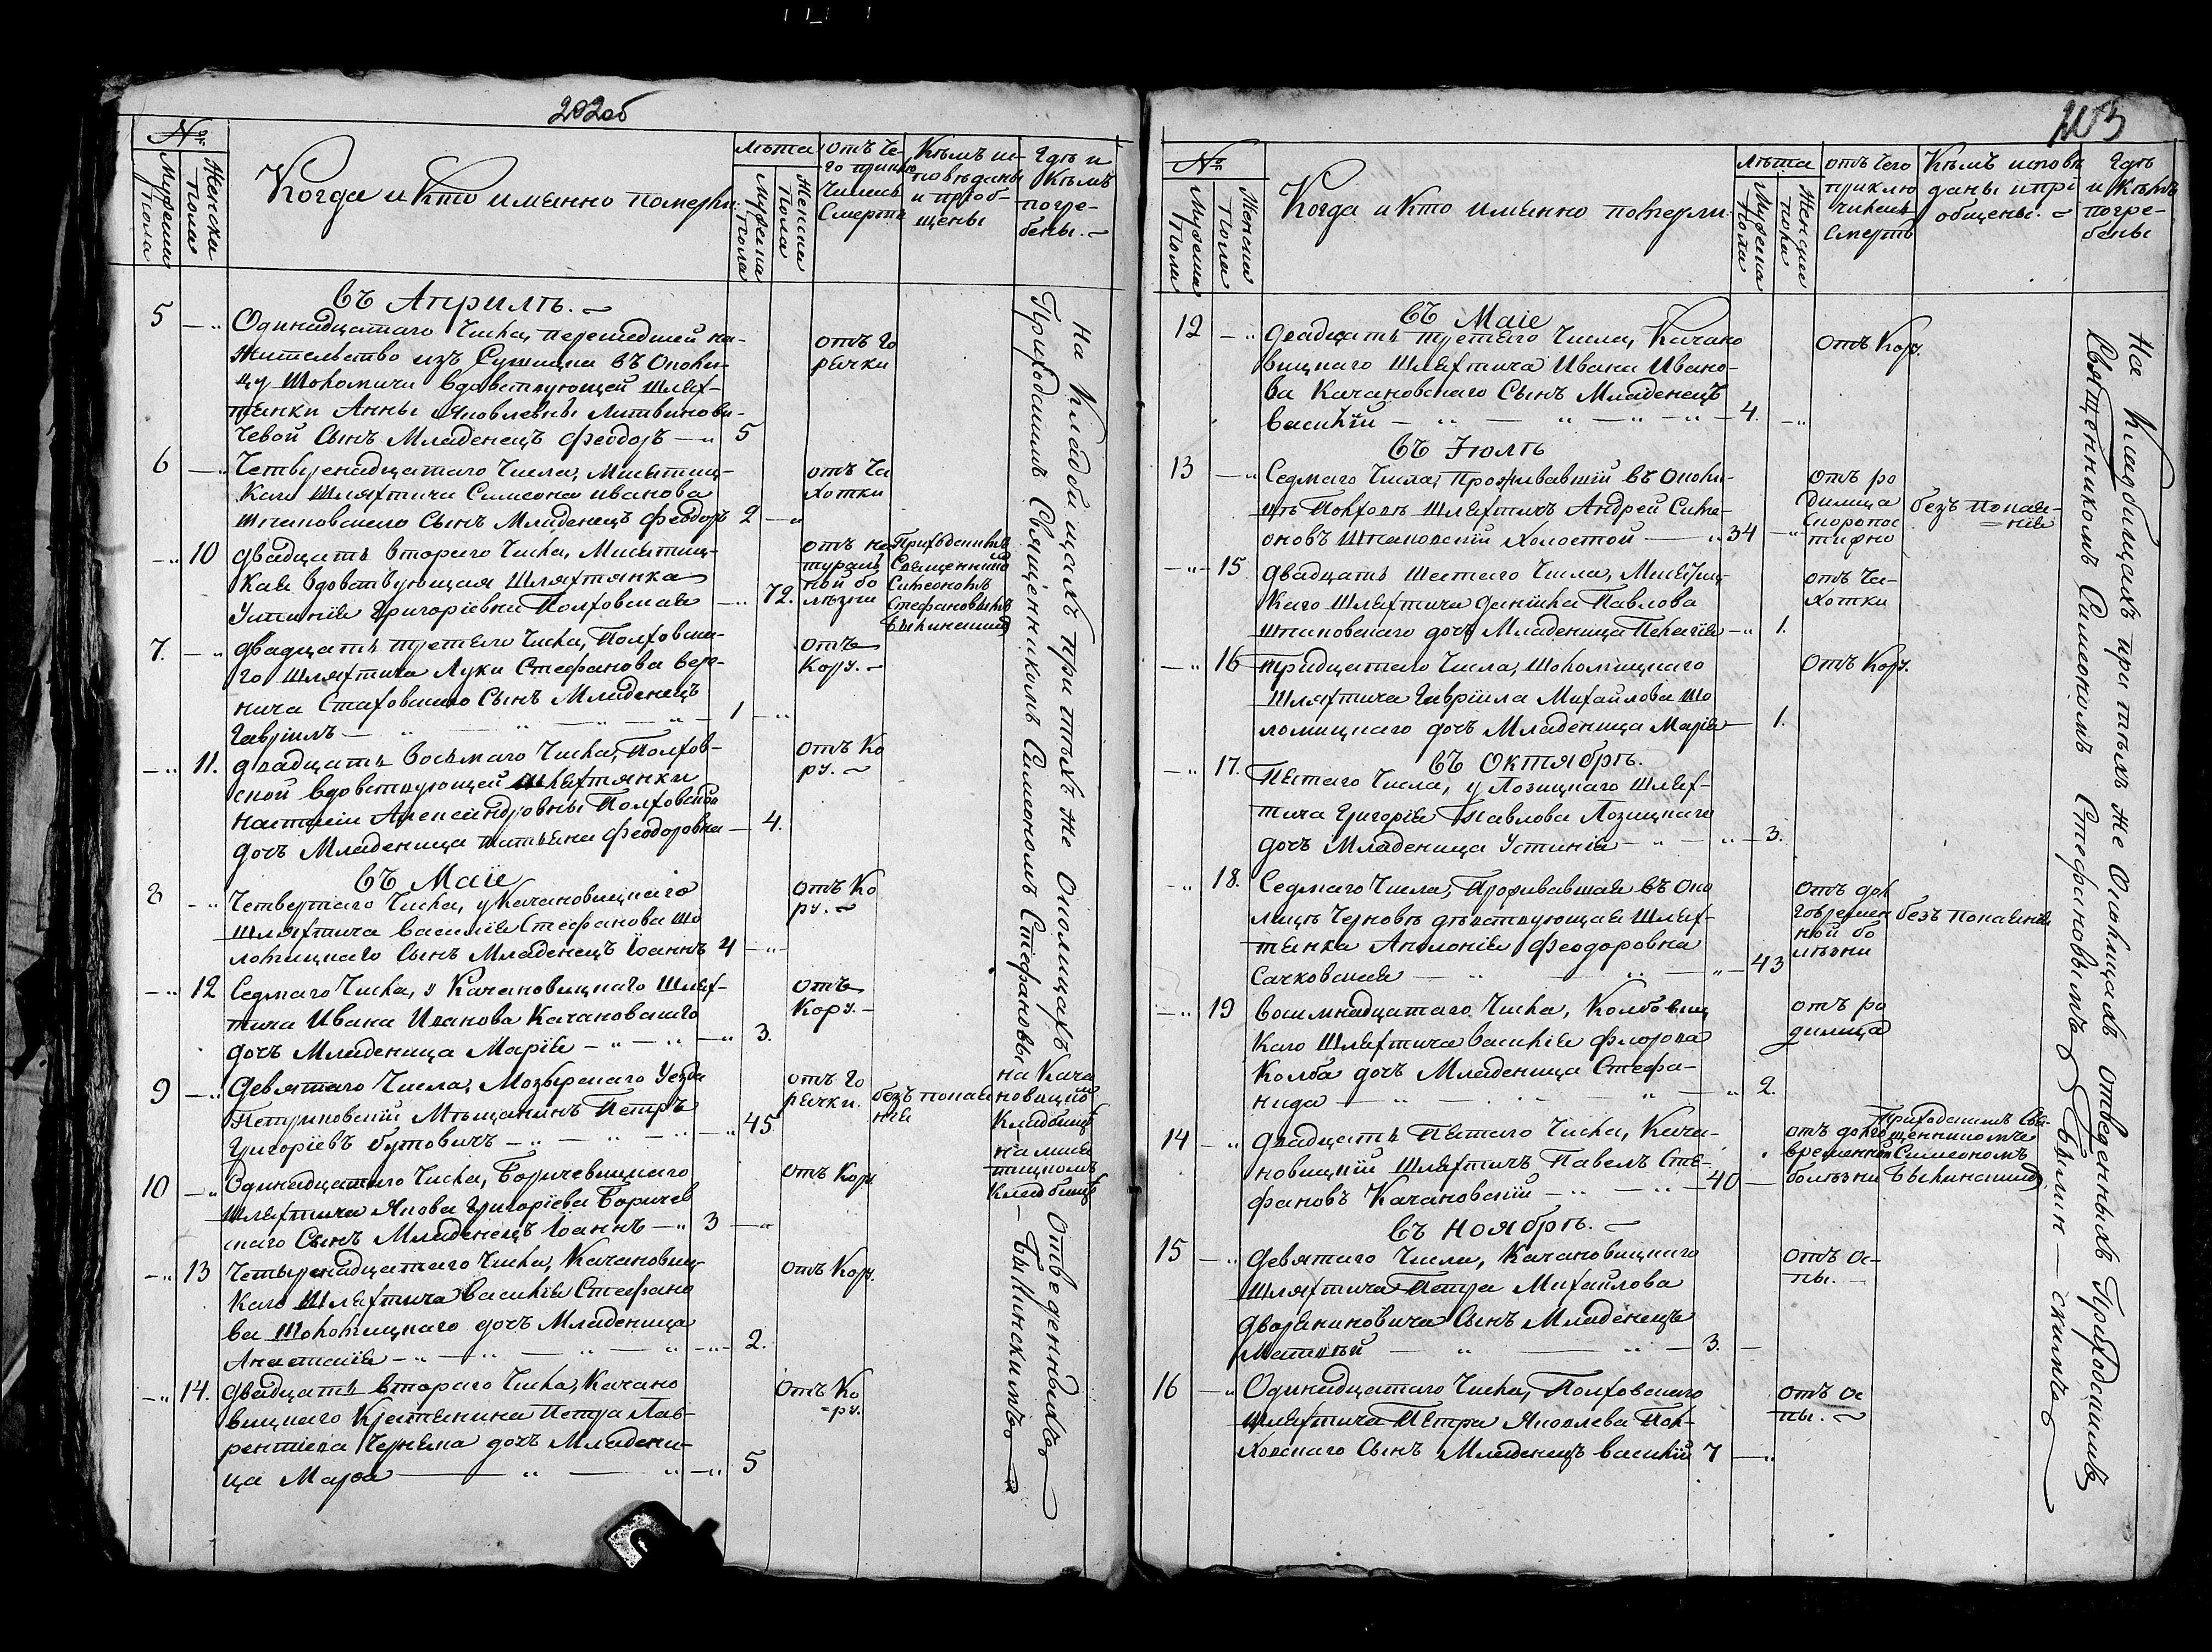 202об
№
Мужеска Пола
Женска Пола
Когда и Кто именно померли
Лѣта
Мужеска Пола
Женска Пола
Отъ Че-
го приклю
чилась
Смерть
Кѣмъ ис-
повѣданы
и приоб-
щены
Гдѣ и
Кѣмъ
погре-
бены.
Въ Априлѣ.
5 Одинадцатаго Числа, перешедшей на
Жительство изъ Сушицка въ Ополи-
цу Шоломичи вдовствующей Шлях-
тянки Анны Яковлевны Литвинови-
чевой Сынъ Младенецъ Феодоръ 5
Отъ Го
рячки
6 Четыренадцатаго Числа, Мисятиц-
каго Шляхтича Симеона Иванова
Шпаковскаго Сынъ Младенецъ Феодоръ 2
отъ Ча
хотки
10 Двадцать втораго Числа, Мисятиц-
кая вдовствующая Шляхтянка
Устинія Григоріевна Полховская 72.
Отъ на
турал
ной бо
лѣзни
Приходскимъ
Священнико
Симеономъ
Стефановымъ
Былинскимъ
7. Двадцать третяго Числа, Полховска-
го Шляхтича Луки Стефанова Вер-
нича Стаховскаго Сынъ Младенецъ
Гавріилъ 1
Отъ
Кору.
11. Двадцать Восьмаго Числа, Полхов-
ской вдовствующей Шляхтянки
Наталіи Александровны Полховской
дочь Младеница Татьяна Феодоровна 4.
Отъ Ко
ру.
Въ Маіе
8 Четвертаго Числа, у Качановицкаго
Шляхтича Василія Стефанова Шо
ломицкаго Сынъ Младенецъ Іоаннъ 4
Отъ Ко
ру.
12 Седмаго Числа, у Качановицкаго Шлях-
тича Ивана Иванова Качановскаго
дочь Младеница Марія 3.
Отъ
Кору.
9 Девятаго Числа, Мозырскаго Уезда
Петриковскій Мѣщанинъ Петръ
Григоріевъ Бутовичъ 45
Отъ Го
рячки.
безъ покая
нія
на Кача
новицко
Кладбищѣ
10 Одинадцатаго Числа, Боричевицкаго
Шляхтича Якова Григоріева Боричев
скаго Сынъ Младенецъ Іоаннъ 3
Отъ Кору
на Мися
тицкомъ
Кладбищѣ
13 Четыренадцатаго Числа, Качановиц
каго Шляхтича Василія Стефано
ва Шоломицкаго дочь Младеница
Анастасія 2.
Отъ Кору.
14. Двадцать втораго Числа, Качано
вицкаго Крестянина Петра Лав-
рентіева Черняка дочь Младени-
ца Марѳа 5
Отъ Ко
ру.
На Кладбищахъ при тѣхъ же Околицахъ Отведенныхъ
Приходскимъ Священникомъ Симеономъ Стефановы Былинскимъ
203
№
Мужеска Пола
Женска Пола
Когда и Кто именно померли
Лѣта
Мужеска Пола
Женскаго пола
отъ Чего
приклю
чилась
Смерть
Кѣмъ исповѣ
даны и прі
общены.
Гдѣ
и Кѣмъ
погре-
бены
Въ Маіе
12 Двадцать третяго Числа, Качано
вицкаго Шляхтича Ивана Ивано-
ва Качановскаго Сынъ Младенецъ
Василій 4.
Отъ Кору.
Въ Іюлѣ
13 Седмаго Числа, Проживавшій въ Околи-
цѣ Полховѣ Шляхтичъ Андрей Симе-
оновъ Шпаковскій Холостой 34
Отъ ро
димца
скоропос
тижно
безъ покая-
нія
15 Двадцать шестаго Числа, Мисятиц-
каго Шляхтича Даніила Павлова
Шпаковскаго дочь Младеница Пелагія 1.
Отъ Ча-
хотки
16 Тридцатаго Числа, Шоломицкаго
Шляхтича Гавріила Михайлова Шо
ломицкаго дочь Младеница Марія 1.
Отъ Кору.
Въ Октябрѣ.
17. Пятаго Числа, у Лозицкаго Шлях-
тича Григорія Павлова Лозицкаго
дочь Младеница Устинія 3.
18. Седмаго Числа, Проживавшая въ Око
лицѣ Черновѣ дѣвствующая Шлях-
тянка Аполонія Феодоровна
Сачковская 43
Отъ дол
говремен
ной бо
лѣзни
безъ покаянія
19 Восимнадцатаго Числа, Колбовиц
каго Шляхтича Василія Флорова
Колба дочь Младеница Стефа-
нида 2.
отъ ро
димца
14 Двадцать Пятаго Числа, Кача-
новицкій Шляхтичъ Павелъ Сте-
фановъ Качановскій 40
отъ долго
временной
болѣзни
Приходскимъ Свя
щенникомъ
Симеономъ
Былинскимъ
Въ Ноябрѣ.
15 Девятаго Числа, Качановицкаго
Шляхтича Петра Михайлова
Дворяниновича Сынъ Младенецъ
Матвѣй 3.
Отъ Ос-
пы.
16 Одинадцатаго Числа, Полховскаго
Шляхтича Петра Яковлева Пол-
ховскаго Сынъ Младенецъ Василій 7
Отъ Ос
пы.
На Кладбищахъ при тѣхъ же Околицахъ Отведенныхъ Приходскимъ
Священникомъ Симеономъ Стефановымъ Былин-скимъ